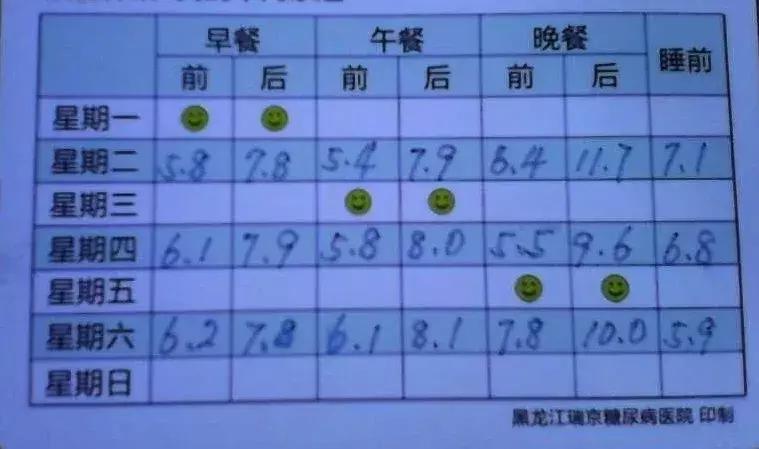 早餐 午餐 晚餐 睡前
前 后 前 后 前 后
星期一
星期二 5.8 7.8 5.4 7.9 6.4 11.7 7.1
星期三
星期四 6.1 7.9 5.8 8.0 5.5 9.6 6.8
星期五
星期六 6.2 7.8 6.1 8.1 7.8 10.0 5.9
星期日
黑龙江瑞京糖尿病医院 印制